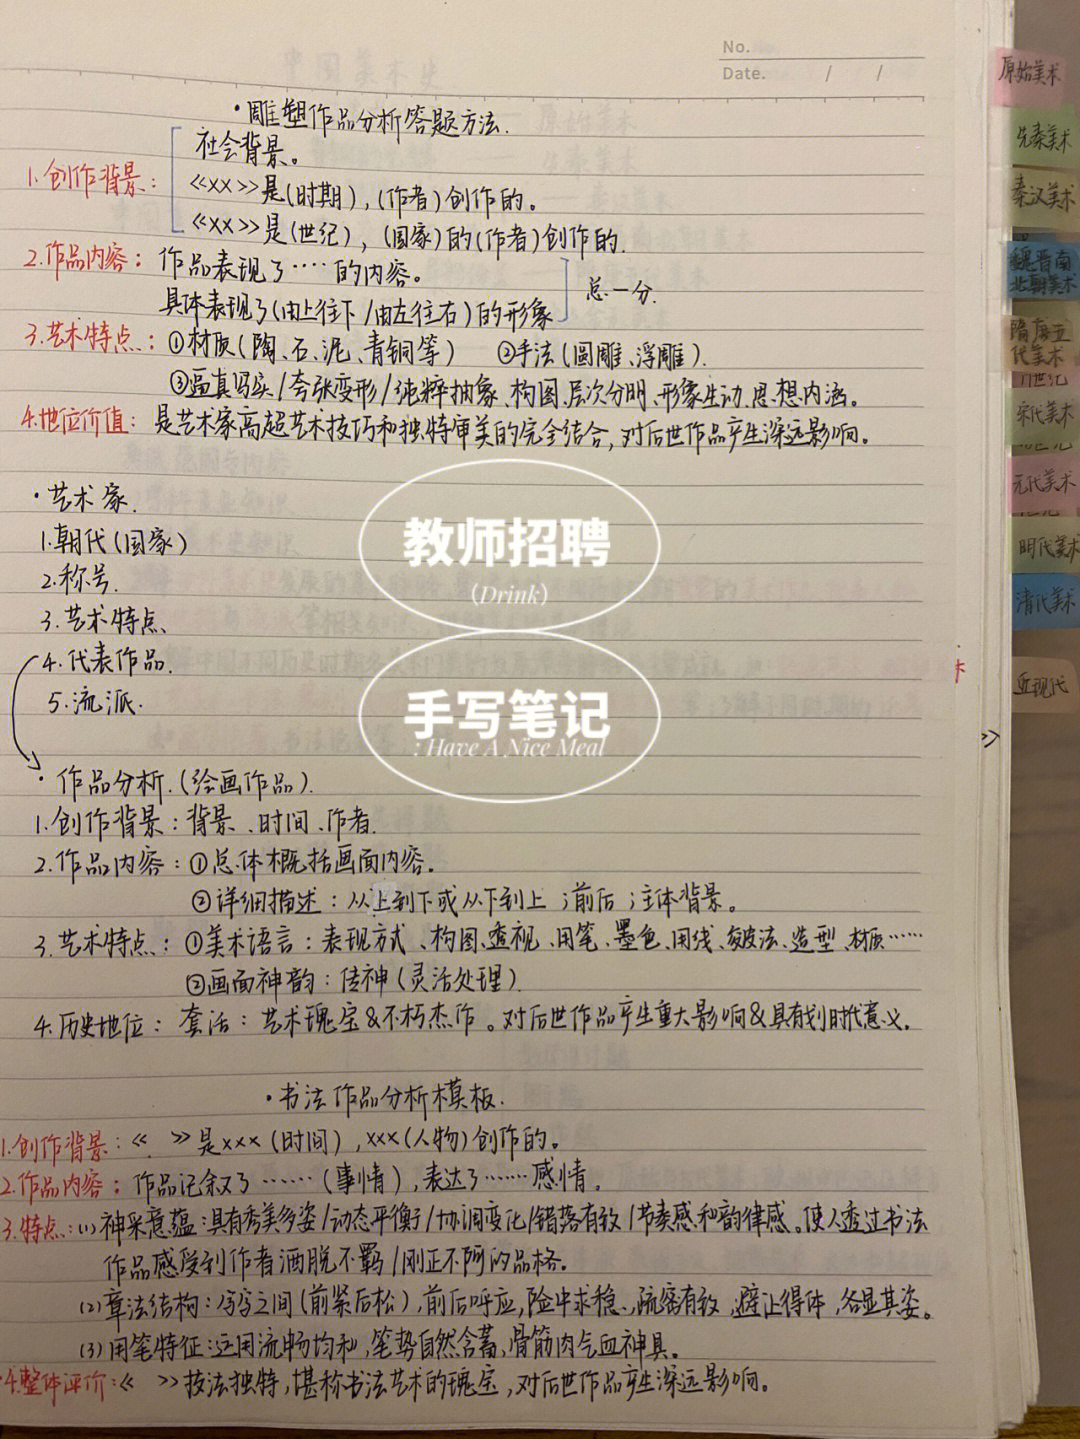 No.
Date. / /
·雕塑作品分析答题方法.
社会背景。
1.创作背景:
《xx》是(时期),(作者)创作的。
《xx》是(世纪),(国家)的(作者)创作的.
2.作品内容: 作品表现了····的内容。
总一分.
具体表现了(由上往下/由左往右)的形象
3.艺术特点: ①材质(陶、石、泥、青铜等) ②手法(圆雕、浮雕).
③逼真写实/夸张变形/纯粹抽象、构图、层次分明、形象生动、思想内涵。
4.地位价值: 是艺术家高超艺术技巧和独特审美的完全结合,对后世作品产生深远影响。
·艺术家.
1.朝代(国家)
2.称号.
3.艺术特点、
4.代表作品.
5.流派.
教师招聘
(Drink)
手写笔记
: Have A Nice Meal
·作品分析.(绘画作品).
1.创作背景:背景、时间、作者.
2.作品内容:①总体概括画面内容.
②详细描述:从上到下或从下到上;前后;主体背景。
3.艺术特点:①美术语言:表现方式、构图、透视、用笔、墨色、用线、皴法、造型、材质……
②画面神韵:传神(灵活处理)
4.历史地位: 套话:艺术瑰宝&不朽杰作。对后世作品产生重大影响&具有划时代意义.
·书法作品分析模板.
1.创作背景:《 》是xxx(时间),xxx(人物)创作的。
2.作品内容:作品记叙了……(事情),表达了……感情。
3.特点:(1)神采意蕴:具有秀美多姿/动态平衡/协调变化/错落有致/节奏感和韵律感。使人透过书法
作品感受到作者洒脱不羁/刚正不阿的品格。
(2)章法结构:字字之间(前紧后松),前后呼应,险中求稳、疏密有致、避让得体,各显其姿。
(3)用笔特征:运用流畅均和,笔势自然含蓄,骨筋肉气血神具。
4.整体评价:《 》技法独特,堪称书法艺术的瑰宝,对后世作品产生深远影响。
原始美术
先秦美术
秦汉美术
魏晋南
北朝美术
隋唐五
代美术
宋代美术
元代美术
明代美术
清代美术
近现代